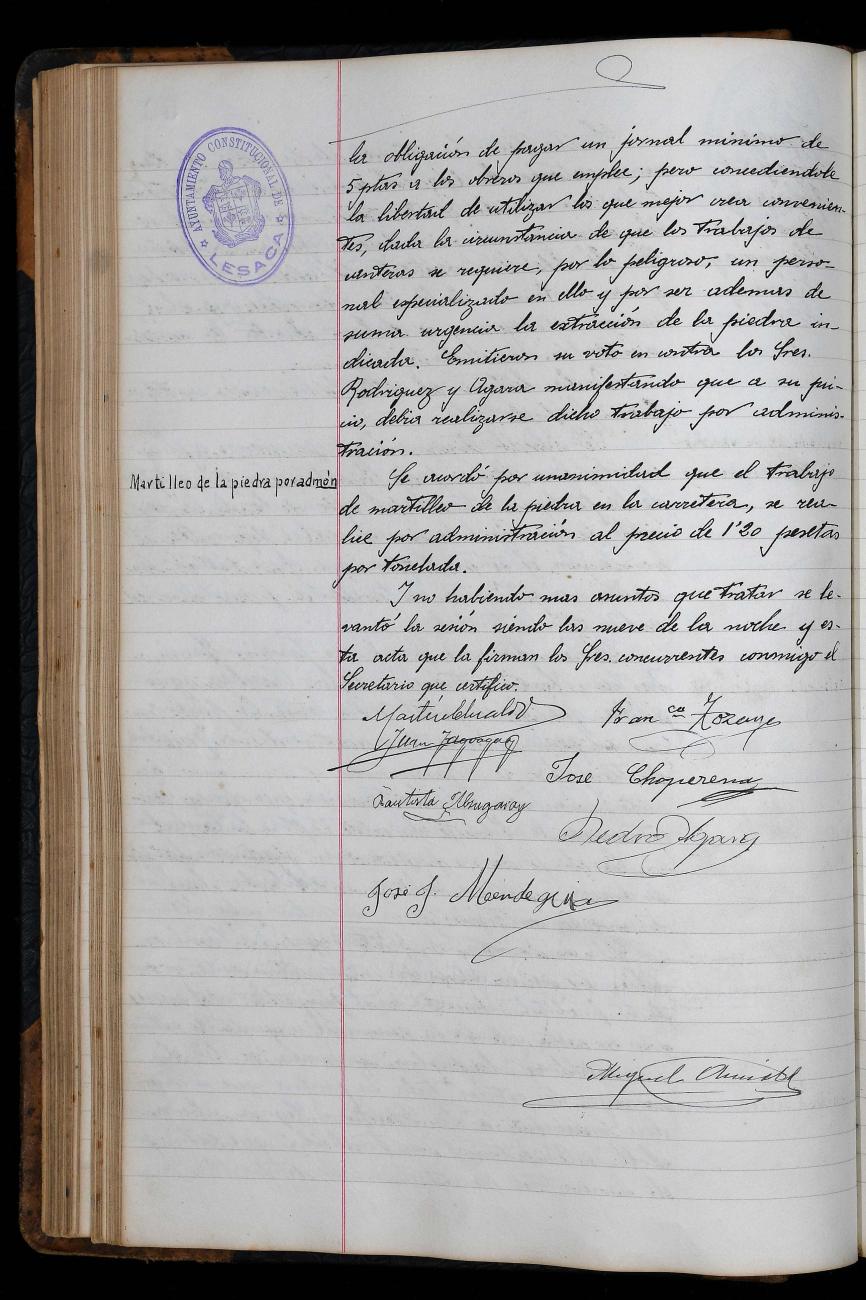 AYUNTAMIENTO CONSTITUCIONAL DE
LESACA
la obligación de pagar un jornal minimo de
5 ptas a los obreros que emplee; pero concediendole
la libertad de utilizar los que mejor crea convenien-
tes, dada la circunstancia de que los trabajos de
canteras se requiere, por lo peligroso, un perso-
nal especializado en ello y por ser ademas de
suma urgencia la extracción de la piedra in-
dicada. Emitieron su voto en contra los Sres.
Rodriguez y Agara manifestando que a su jui-
cio, debia realizarse dicho trabajo por adminis-
tración.
Martilleo de la piedra por admón
Se acordó por unanimidad que el trabajo
de martilleo de la piedra en la carretera, se rea-
lice por administración al precio de 1'20 pesetas
por tonelada.
Y no habiendo mas asuntos que tratar se le-
vantó la sesión siendo las nueve de la noche y es-
ta acta que la firman los Sres. concurrentes conmigo el
Secretario que certifico.
Martin
Franca
Juan
Jose Choperena
Bautista
Pedro
José J. Mendeguia
Miguel